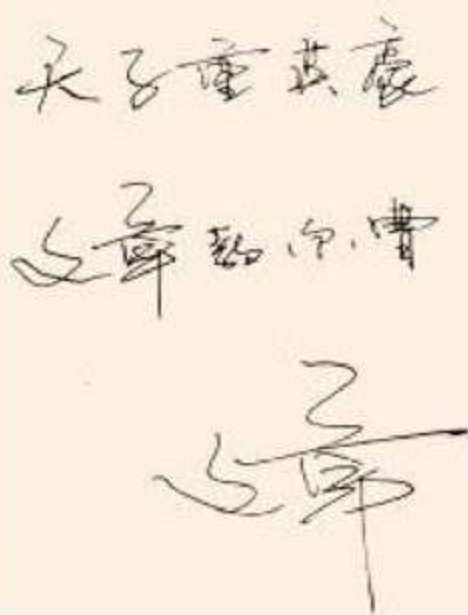 天子重英豪
文章教尔曹
文章